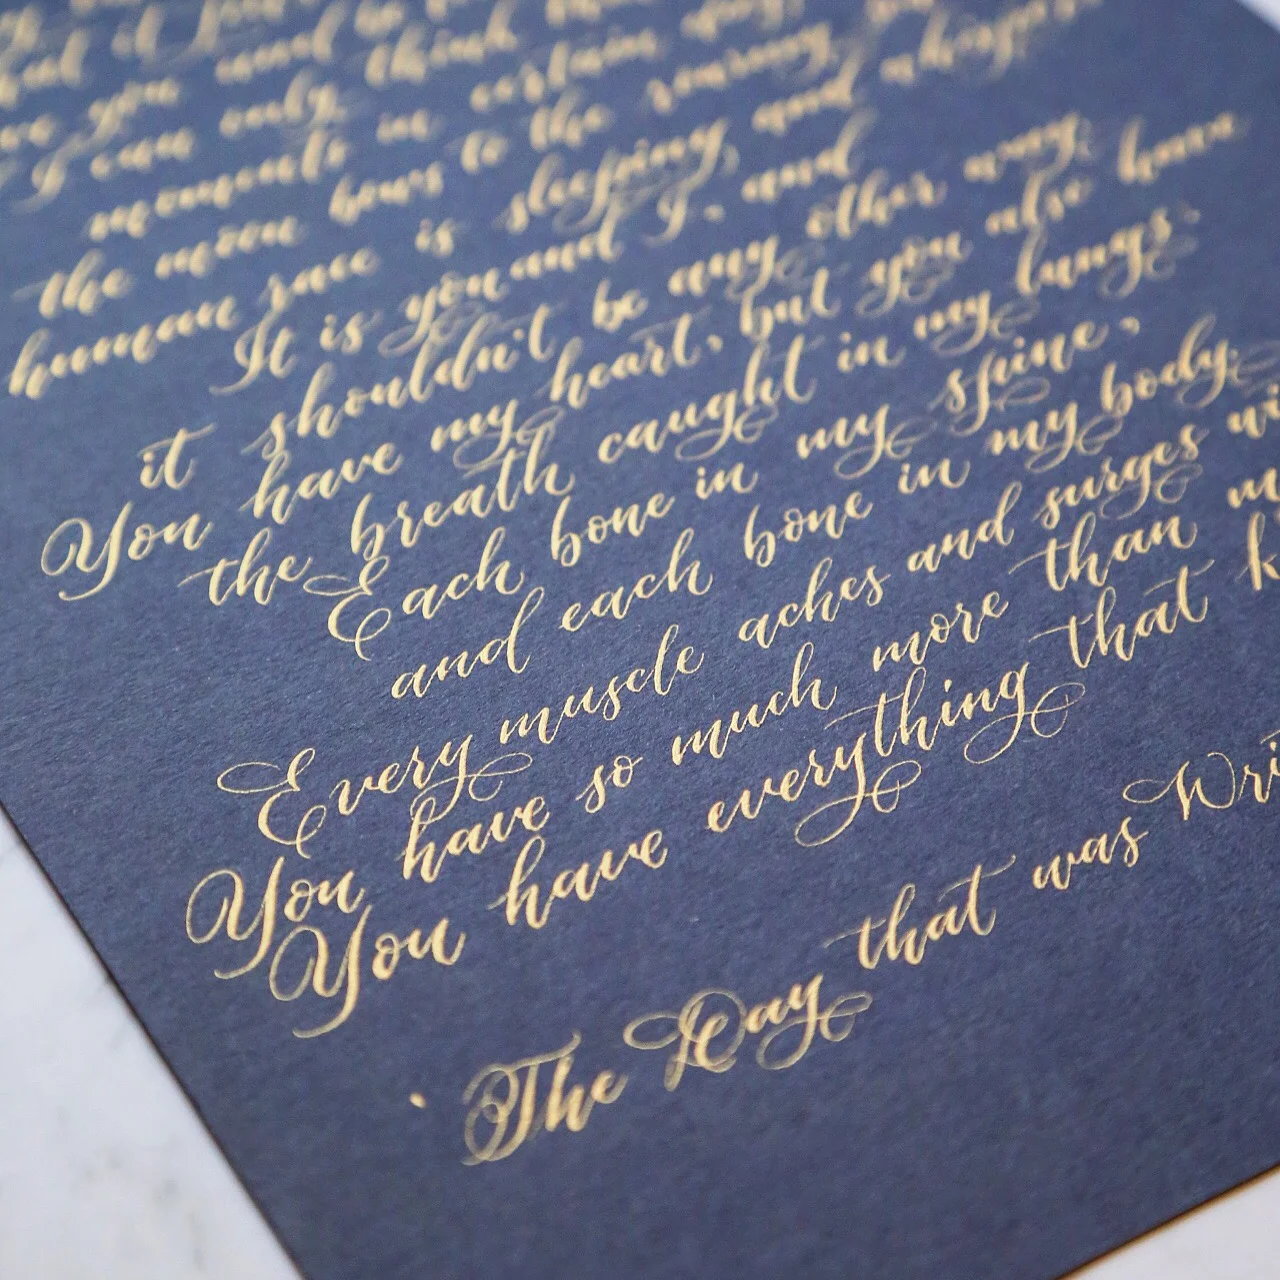 you and
I can only think
moments in certain
the moon bows to the
human race is sleeping, and
It is you and I, and
it shouldn't be any other way.
You have my heart, but you also have
the breath caught in my lungs.
Each bone in my spine,
and each bone in my body.
Every muscle aches and surges
You have so much more than
You have everything that
' The Day that was